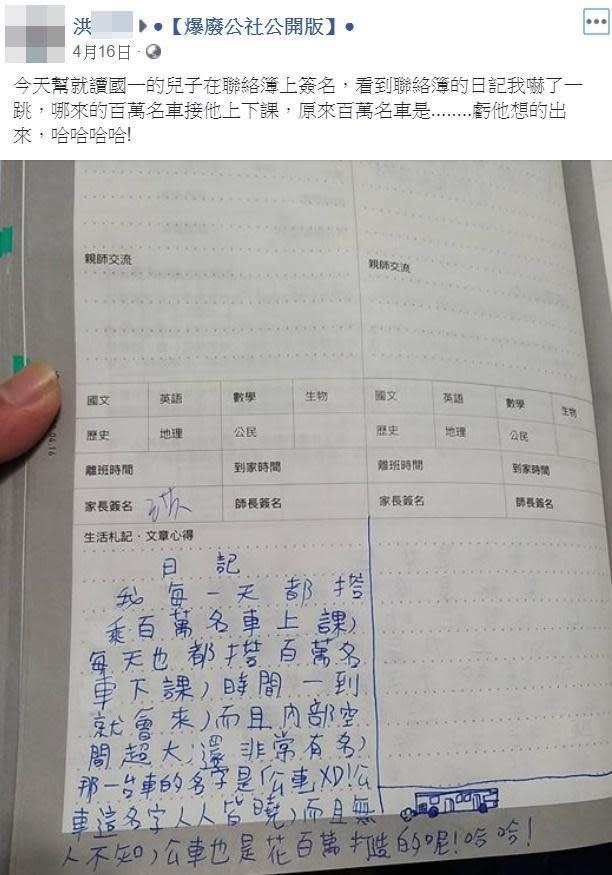 洪 ▶ •【爆廢公社公開版】•
4月16日 ·
今天幫就讀國一的兒子在聯絡簿上簽名，看到聯絡簿的日記我嚇了一
跳，哪來的百萬名車接他上下課，原來百萬名車是........虧他想的出
來，哈哈哈哈!
親師交流
親師交流
國文 英語 數學 生物 國文 英語 數學 生物
歷史 地理 公民 歷史 地理 公民
離班時間 到家時間 離班時間 到家時間
家長簽名 洪 師長簽名 家長簽名 師長簽名
生活札記·文章心得
日記
我每一天都搭
乘百萬名車上課，
每天也都搭百萬名
車下課，時間一到
就會來，而且內部空
間超大，還非常有名，
那一台車的名字是「公車XD!公
車這名字人人皆曉，而且無
人不知，公車也是花百萬打造的呢!哈哈!